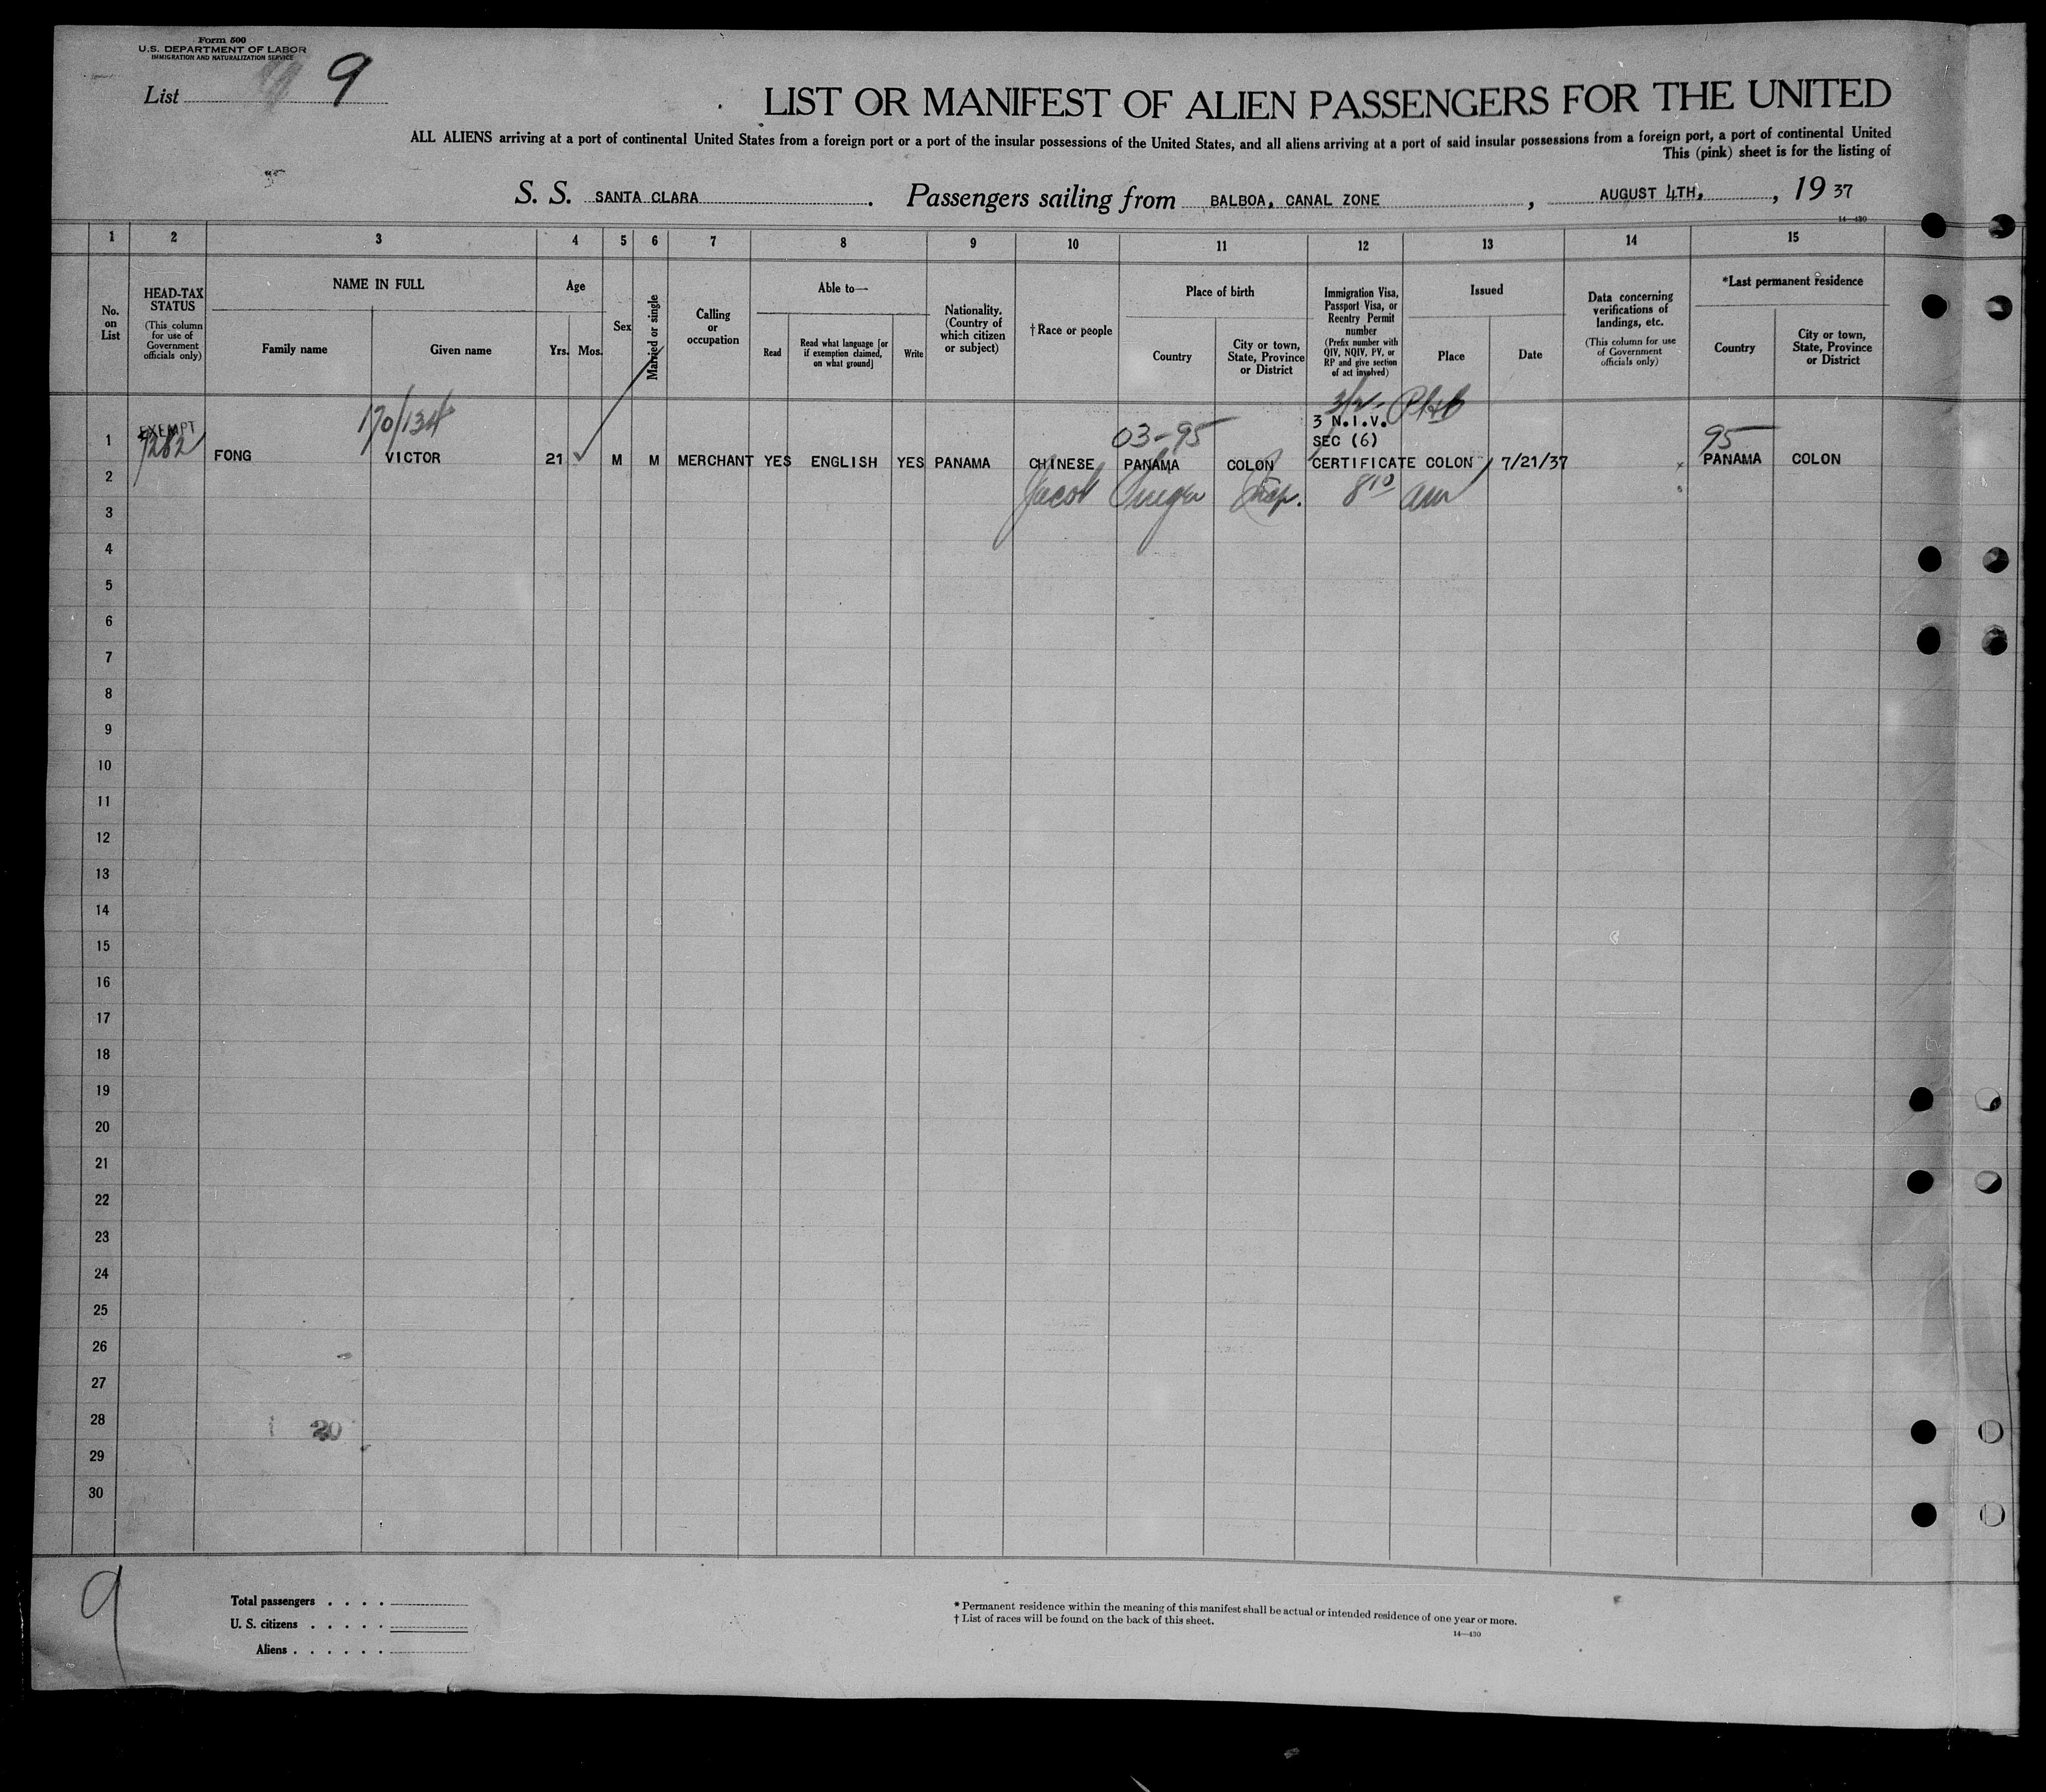 Form 500
U.S. DEPARTMENT OF LABOR
IMMIGRATION AND NATURALIZATION SERVICE
List 9
LIST OR MANIFEST OF ALIEN PASSENGERS FOR THE UNITED
ALL ALIENS arriving at a port of continental United States from a foreign port or a port of the insular possessions of the United States, and all aliens arriving at a port of said insular possessions from a foreign port, a port of continental United
This (pink) sheet is for the listing of
S. S. SANTA CLARA. Passengers sailing from BALBOA, CANAL ZONE, AUGUST 4TH, , 19 37
14—430
1 2 3 4 5 6 7 8 9 10 11 12 13 14 15
No. on List
HEAD-TAX STATUS
(This column for use of Government officials only)
NAME IN FULL
Family name
Given name
Age
Yrs.
Mos.
Sex
Married or single
Calling or occupation
Able to—
Read
Read what language [or if exemption claimed, on what ground]
Write
Nationality. (Country of which citizen or subject)
† Race or people
Place of birth
Country
City or town, State, Province or District
Immigration Visa, Passport Visa, or Reentry Permit number
(Prefix number with QIV, NQIV, PV, or RP and give section of act involved)
Issued
Place
Date
Data concerning verifications of landings, etc.
(This column for use of Government officials only)
*Last permanent residence
Country
City or town, State, Province or District
3/2
170/134
3 N.I.V.
EXEMPT
03-95
SEC (6)
95
1 FONG VICTOR 21 M M MERCHANT YES ENGLISH YES PANAMA CHINESE PANAMA COLON CERTIFICATE COLON 7/21/37 PANAMA COLON
2 Jacob Insp. 8 10 am
3
4
5
6
7
8
9
10
11
12
13
14
15
16
17
18
19
20
21
22
23
24
25
26
27
28
20
29
30
9
Total passengers . . . .
U. S. citizens . . . . .
Aliens . . . . . .
* Permanent residence within the meaning of this manifest shall be actual or intended residence of one year or more.
† List of races will be found on the back of this sheet.
14—430